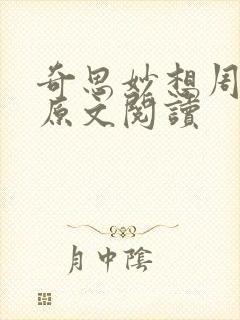 奇思妙想周
原文閱讀
月中陰